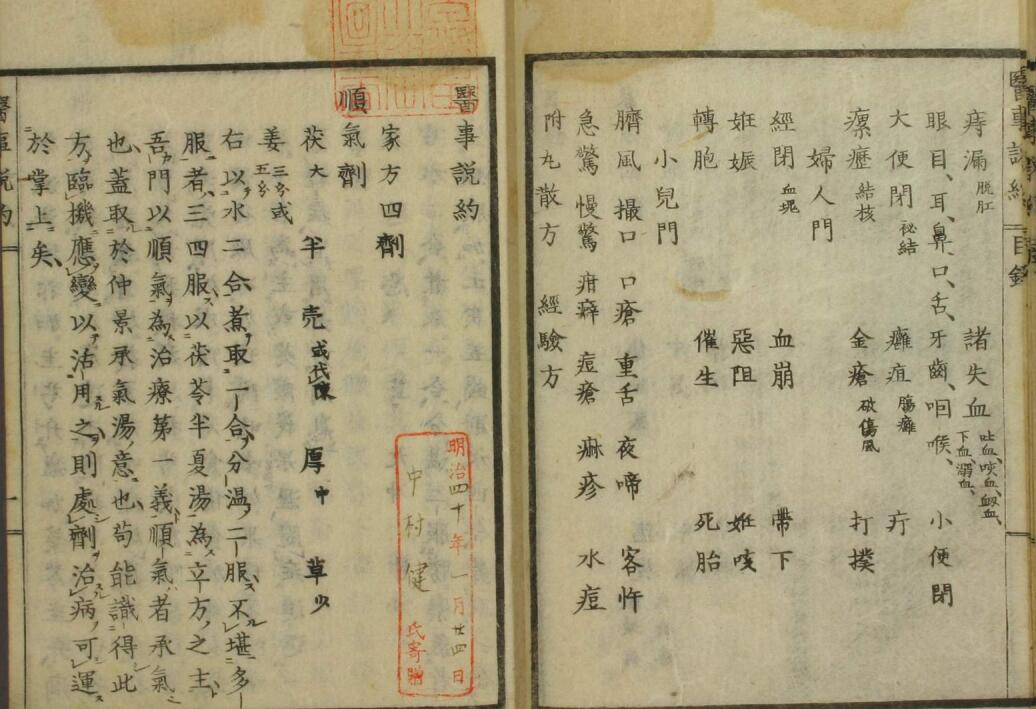 痔漏 脱肛 諸失血 吐血、咳血、衂血、下血、溺血、
眼目、耳、鼻、口、舌、牙齒、咽喉、 小便閉
大便閉 祕結 癰疽 腸癰 疔
瘰癧 結核 金瘡 破傷風 打撲
婦人門
經閉 血塊 血崩 帶下
姙娠 惡阻 姙咳
轉胞 催生 死胎
小兒門
臍風 撮口 口瘡 重舌 夜啼 客忤
急驚 慢驚 疳癖 痘瘡 痳疹 水痘
附丸散方 經驗方
醫事說約
家方四劑
順氣劑
茯大 半 売或代陳 厚中 草少
姜三分或五分
右以水二合、煮取一合、分温、二服、不堪多
服者、三四服、以茯苓半夏湯為立方之主
吾門以順氣為治療第一義順氣者承氣
也、蓋取於仲景承氣湯、意也、苟能識得此
方、臨機應變以活用之則處劑治病、可運
於掌上矣、
明治四十年一月廿四日
中村健
氏寄贈